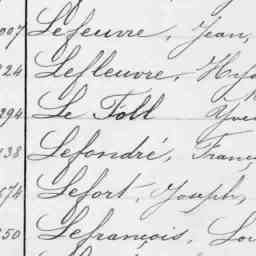 007 Lefeuvre, Jean,
224 Lefleuvre, Hya
294 Le Foll Yve
438 Lefondré, Franç
574 Lefort, Joseph,
650 Lefrançois, Lou